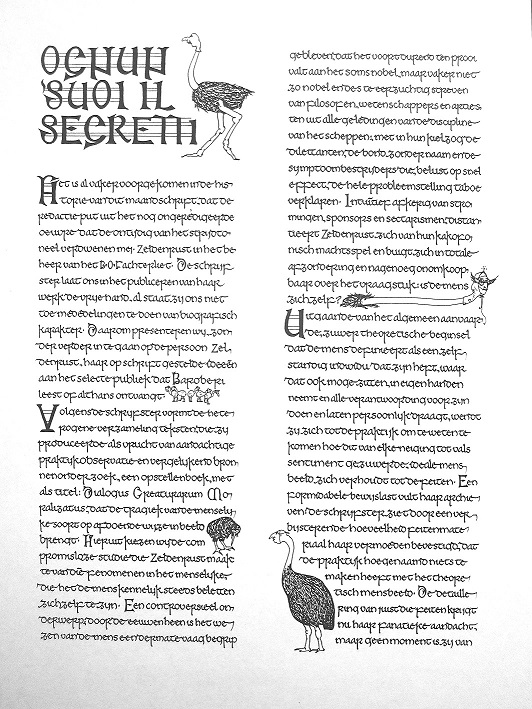 OGNUN
SUOI IL
SEGRETI
Het is al vaker voorgekomen in de his-
torie van dit maandschrift, dat de
redactie put uit het nog ongeredigeerde
oeuvre, dat de
neel verdwenen mej. Zeldenrust in het be-
heer van het B.O.F. achterliet. De schrijf-
ster laat ons in het publiceren van haar
werk de vrije hand, al staat zij ons niet
toe mededelingen te doen van biografisch
karakter. Daarom presenteren wij, zon-
der verder in te gaan op de persoon Zel-
denrust, haar op schrift gestelde ideeën
aan het selecte publiek dat Baroberi
leest of althans ontvangt. BAPER
Volgens de schrijfster vormt de hete-
rogene verzameling teksten, die zij
produceerde als vrucht van aandachtige
praktijkobservatie en vergelijkend bron-
nenonderzoek, een opstellenboek, met
als titel: Dialogus Creaturarum Mo-
ralizatus, dat de tragiek van de menselij-
ke soort op afdoende wijze in beeld
brengt. Hieruit kiezen wij de com-
promisloze studie die Zeldenrust maak-
te van die fenomenen in het menselijke,
die het de mens kennelijk steeds beletten
zichzelf te zijn. Een controversieel on-
derwerp, door de eeuwen heen is het we-
zen van de mens een dermate vaag begrip
gebleven, dat het voortdurend ten prooi
valt aan het soms nobel, maar vaker niet
zo nobel en des te eerzuchtig streven
van filosofen, wetenschappers en arties-
ten uit alle geledingen van de discipline
van het scheppen; met in hun kielzog de
dilettanten, de bord zonder naam en de
symptoombestrijders die, belust op snel
effect, de hele probleemstelling taboe
verklaren. Intuïtief afkerig van stro-
mingen, sponsors en sectarismen, distan-
tieert Zeldenrust zich van hun kakofo-
nisch machtsspel en buigt zich in totale
afzondering en nagenoeg onomkoop-
baar over het vraagstuk: is de mens
zichzelf?
Uitgaande van het algemeen aanvaar-
de, zuiver theoretische beginsel
dat de mens definieert als een zelf-
standig individu dat zijn heft, waar
dat ook moge zitten, in eigen handen
neemt en alle verantwoording voor zijn
doen en laten persoonlijk draagt, wendt
zij zich tot de praktijk om te weten te
komen hoe dit van elke neiging tot vals
sentiment gezuiverde, ideale mens-
beeld, zich verhoudt tot de feiten. Een
formidabele bewijslast vult haar archie-
ven: de schrijfster ziet door een ver-
bijsterende hoeveelheid feitenmate-
riaal haar vermoeden bevestigd, dat
de praktijk hoegenaamd niets te
maken heeft met het theore-
tisch mensbeeld. De detaille-
ring van juist die feiten krijgt
nu haar fanatieke aandacht,
maar geen moment is zij van